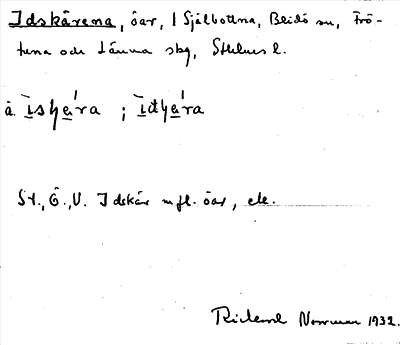 Idskärena, öar, I Själbottna, Blidö sn, Frö-
tuna och Länna skg, Sthlms l.
a. ɪ̄sɧa̱'ra ; ɪ̄dɧa̱'ra
St., Ö., V. Idskär m.fl. öar, etc.
Rickard Norrman 1932.